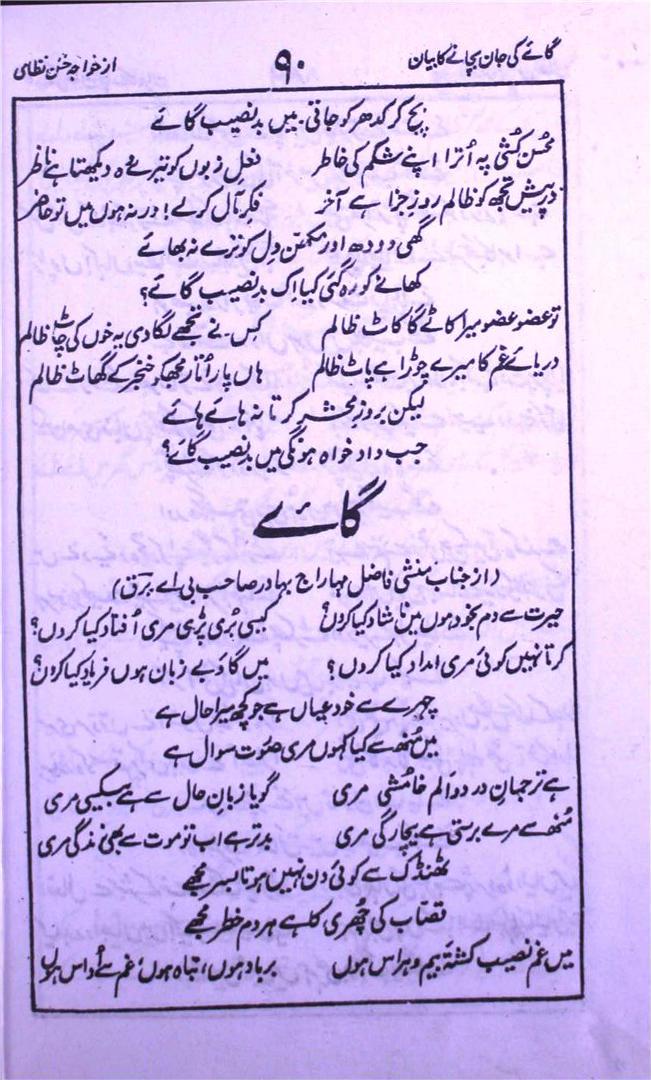 گائے کی جان بچانے کا بیان ۹۰ از خواجہ حسن نظامی
بچ کر کدھر کو جاتی۔ میں بد نصیب گائے
محسن کشی پہ اُترا اپنے شکم کی خاطر فعلِ زبوں کو تیرے وہ دیکھتا ہے ناظر
درپیش تجھ کو ظالم روزِ جزا ہے آخر فکرِ مآل کر لے! ورنہ ہوں میں تو حاضر
گھی دودھ اور مکھن دِل کو ترے نہ بھائے
کھانے کو رہ گئی کیا اِک بد نصیب گائے؟
تو عضو عضو میرا کاٹے گا کاٹ ظالم کس نے تجھے لگا دی یہ خوں کی چاٹ ظالم
دریائے غم کا میرے چوڑا ہے پاٹ ظالم ہاں پار اُتار مجھ کو خنجر کے گھاٹ ظالم
لیکن بروزِ محشر کرتا نہ ہائے ہائے
جب داد خواہ ہونگی میں بد نصیب گائے؟
گائے
(از جناب منشی فاضل مہاراج بہادر صاحب بی اے برق)
حیرت سے دم بخود ہوں میں ناشاد کیا کروں؟ کیسی بُری پڑی مری اُفتاد کیا کروں؟
کرتا نہیں کوئی مری امداد کیا کروں؟ میں گاؤ بے زبان ہوں فریاد کیا کروں؟
چہرے سے خود عیاں ہے جو کچھ میرا حال ہے
میں مُنھ سے کیا کہوں مری صورت سوال ہے
ہے ترجمانِ درد و الم خامُشی مری گویا زبانِ حال سے ہے بیکسی مری
مُنھ سے مرے برستی ہے بیچارگی مری بدتر ہے اب تو موت سے بھی زندگی مری
ٹھنڈک سے کوئی دن نہیں ہوتا بسر مجھے
قصّاب کی چھُری کا ہے ہر دم خطر مجھے
میں غم نصیب کشتۂ بیم و ہراس ہوں برباد ہوں، تباہ ہوں، غم سے اُداس ہوں